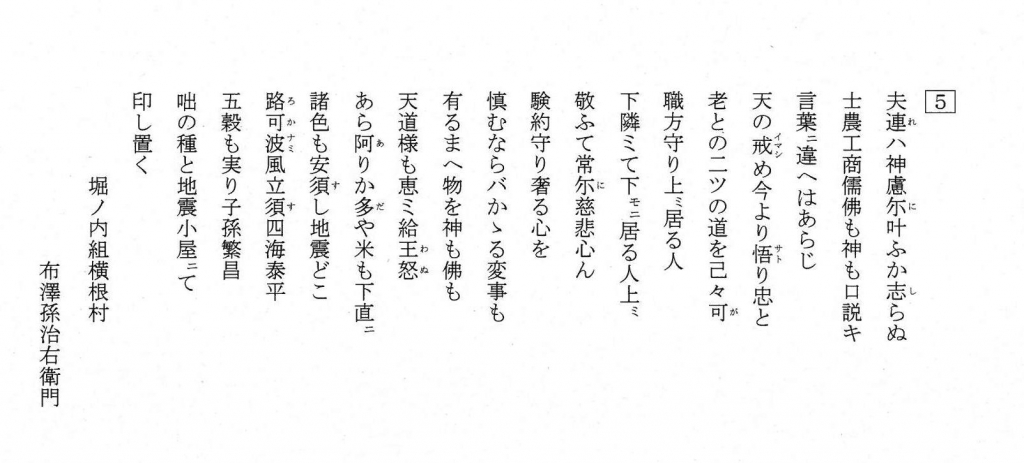 5
夫連ハ神慮尓叶ふか志らぬ
士農工商儒佛も神も口説キ
言葉ニ違へはあらじ
天の戒め今より悟り忠と
老との二ツの道を己々可
職方守り上ミ居る人
下隣ミて下モニ居る人上ミ
敬ふて常尓慈悲心ん
験約守り奢る心を
慎むならバかゝる変事も
有るまへ物を神も佛も
天道様も恵ミ給王怒
あら阿りか多や米も下直ニ
諸色も安須し地震どこ
路可波風立須四海泰平
五穀も実り子孫繁昌
咄の種と地震小屋ニて
印し置く
堀ノ内組横根村
布澤孫治右衛門